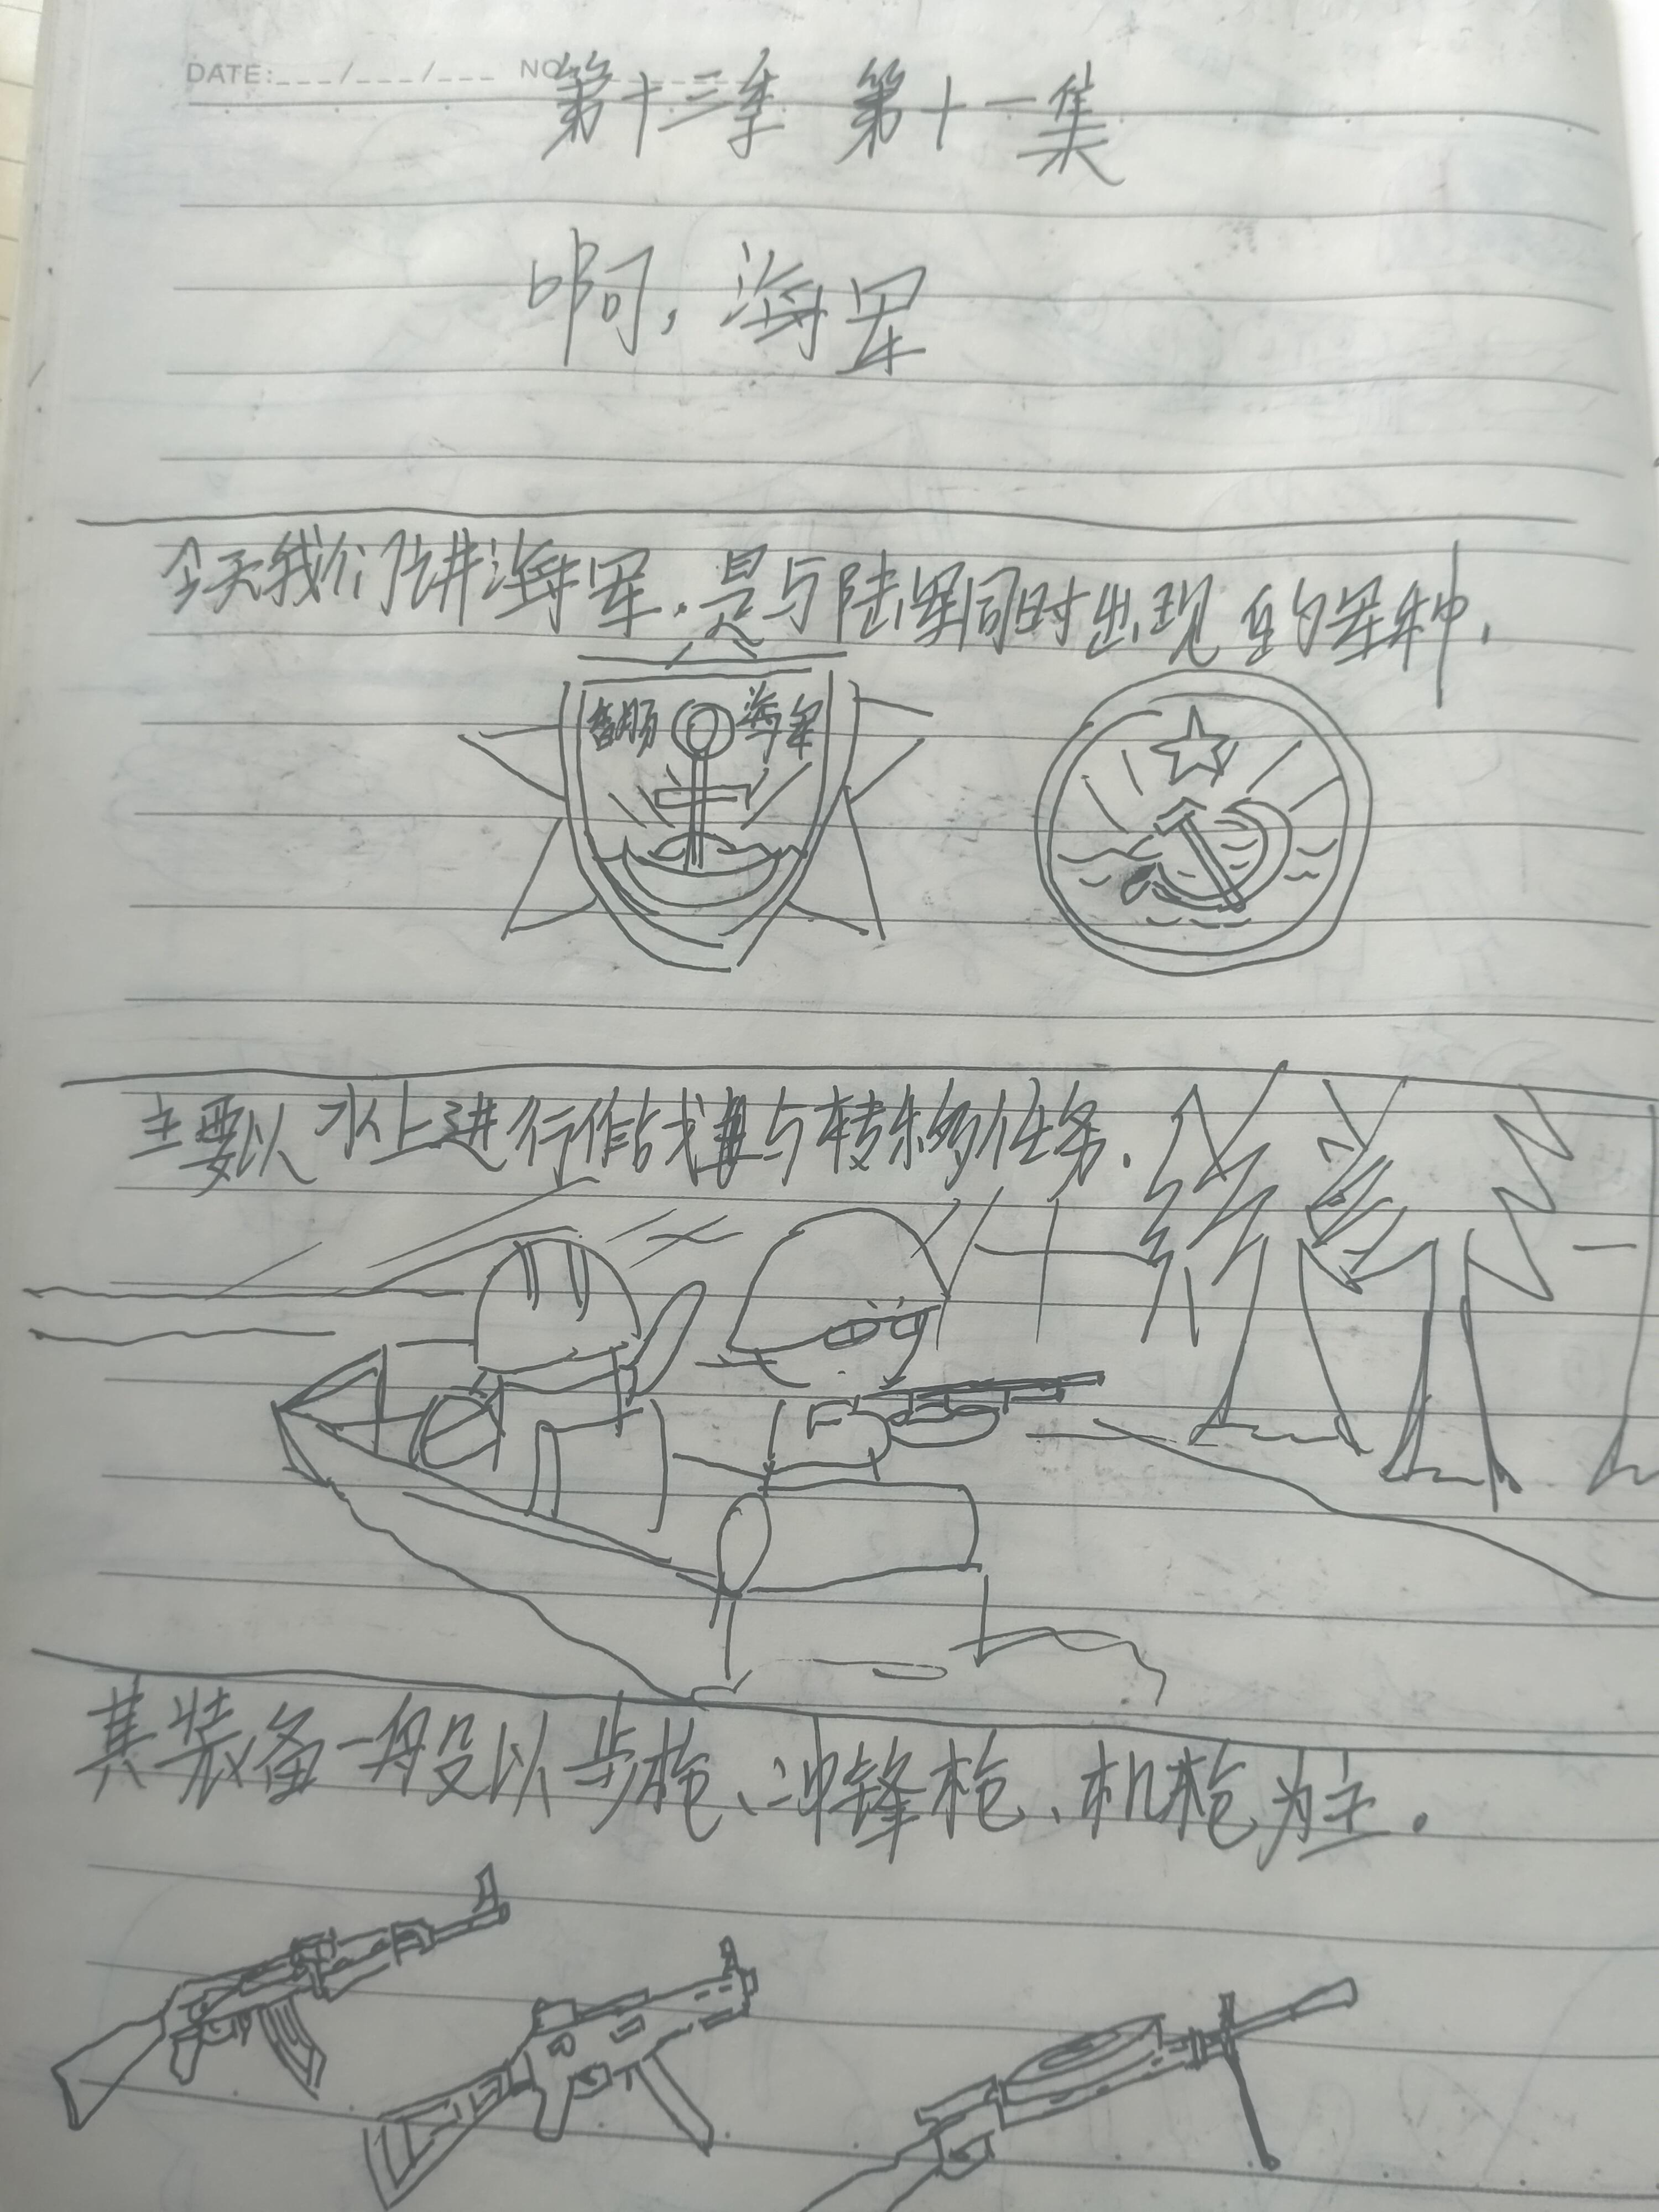 DATE:___/___/___ NO
第十三季 第十一集
啊，海军
今天我们讲海军.是与陆军同时出现的军种.
海军
主要以水上进行作战与转移任务.
其装备一般以步枪、冲锋枪、机枪为主.